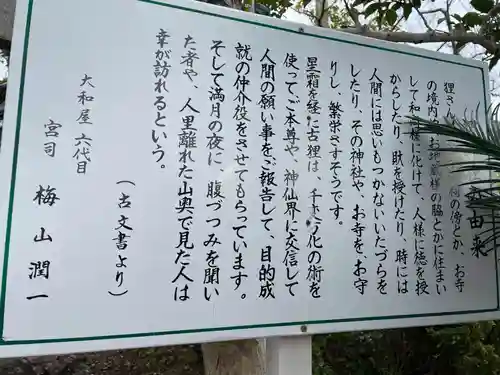 由来
狸さん
の傍とか、お寺
の境内の お地蔵様の脇とかに住まい
して和 様に化けて、人様に徳を授
からしたり、財を授けたり、時には
人間には思いもつかないいたづらを
したり、その神社や、お寺を、お守
りし、繁栄さすそうです。
星霜を経た古狸は、千まん化の術を
使ってご本尊や、神仙界に交信して
人間の願い事をご報告して、目的成
就の仲介役をさせてもらっています。
そして満月の夜に、腹づつみを聞い
た者や、人里離れた山奥で見た人は
幸が訪れるという。
（古文書より）
大和屋 六代目
宮司 梅山潤一